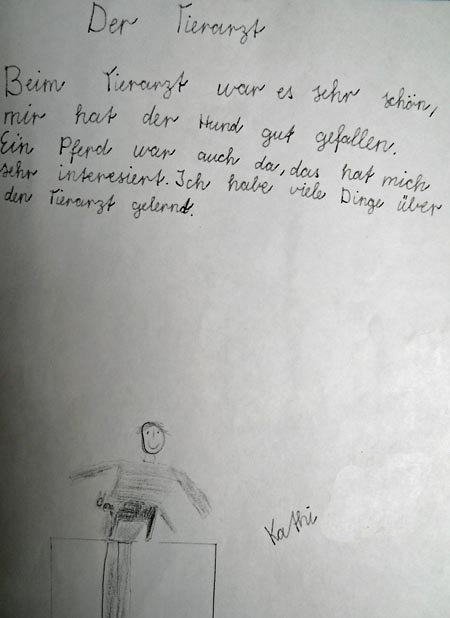 Der Tierarzt
Beim Tierarzt war es sehr schön,
mir hat der Hund gut gefallen.
Ein Pferd war auch da, das hat mich
sehr interesiert. Ich habe viele Dinge über
den Tierarzt gelernd.
Kathi